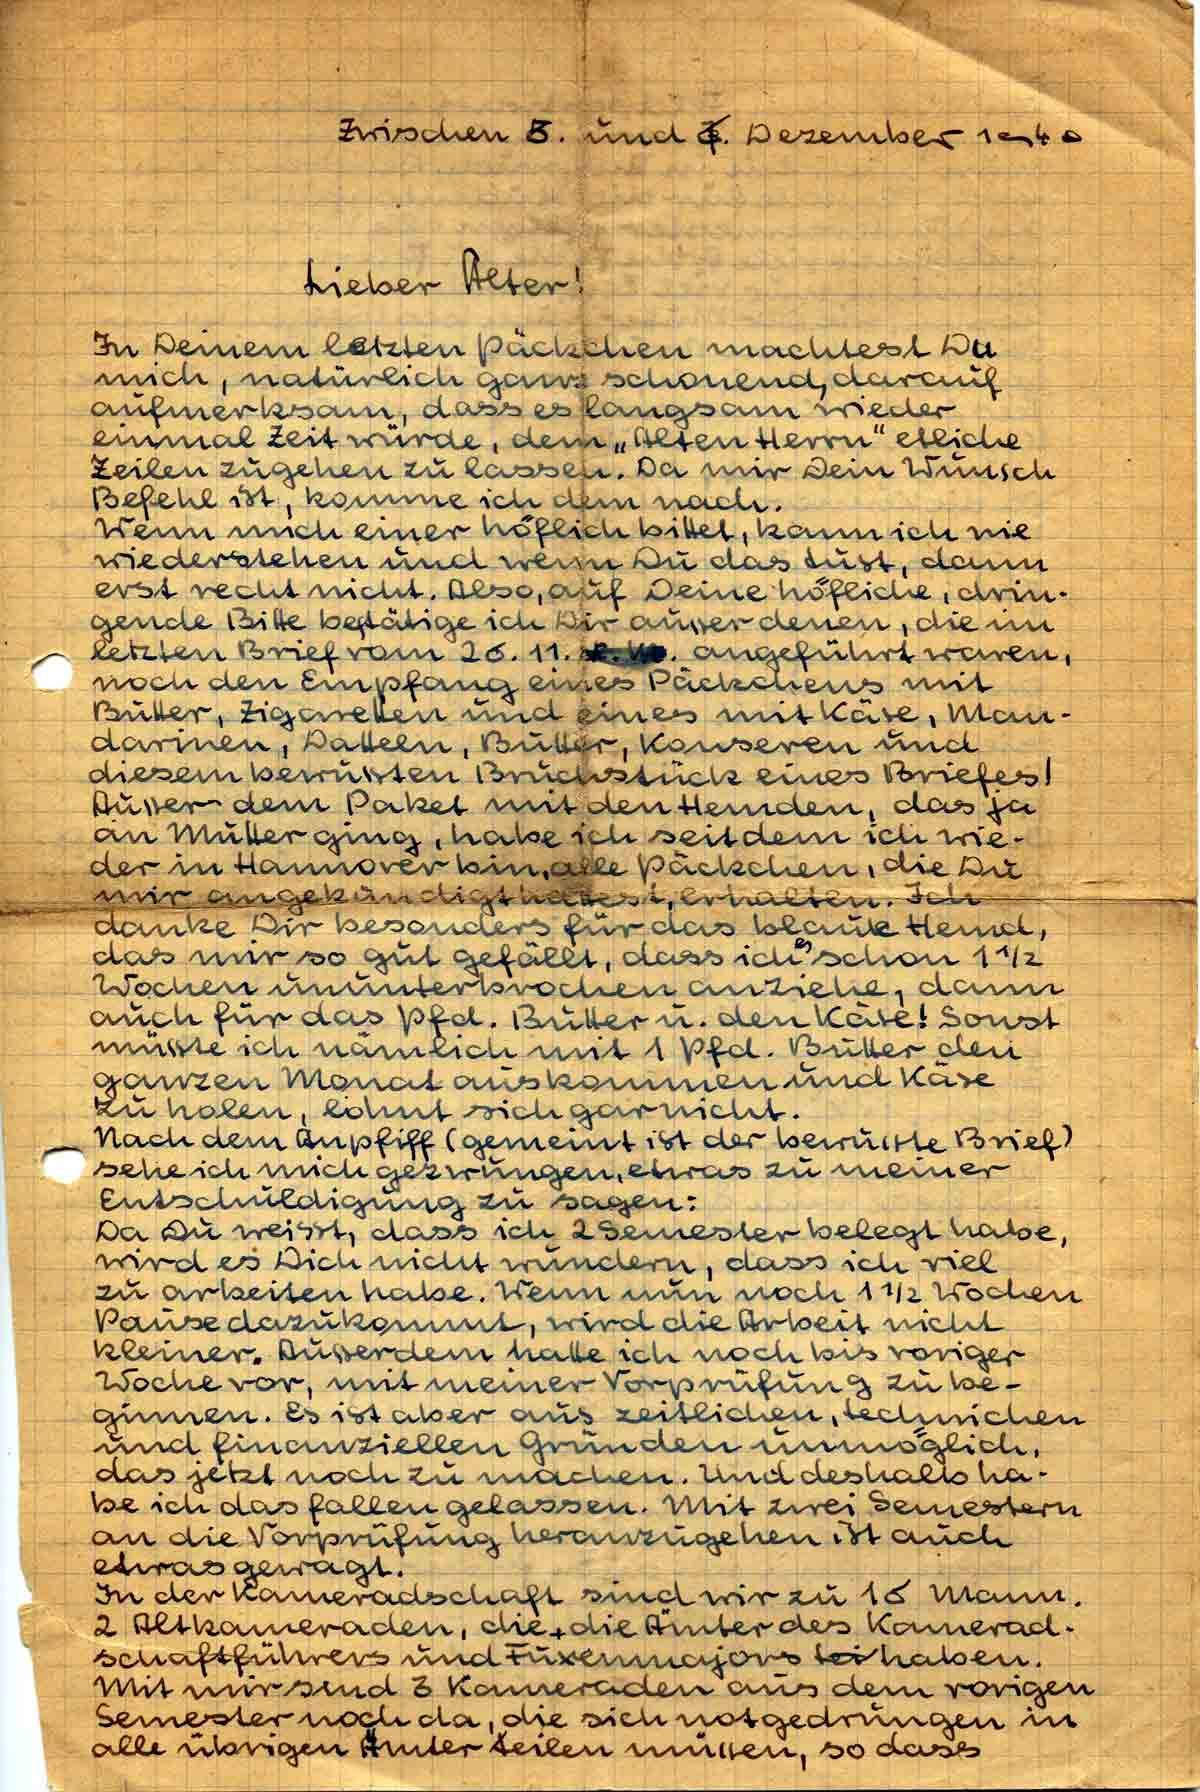 Zwischen 5. und 7. Dezember 1940
Lieber Alter!
In Deinem letzten Päckchen machtest Du
mich, natürlich ganz schonend, darauf
aufmerksam, dass es langsam wieder
einmal Zeit würde, dem „Alten Herrn" etliche
Zeilen zugehen zu lassen. Da mir Dein Wunsch
Befehl ist, komme ich dem nach.
Wenn mich einer höflich bittet, kann ich nie
wiederstehen und wenn Du das tust, dann
erst recht nicht. Also, auf Deine höfliche, drin-
gende Bitte bestätige ich Dir ausser denen, die im
letzten Brief vom 26. 11. angeführt waren,
noch den Empfang eines Päckchens mit
Butter, Zigaretten und eines mit Käse, Man-
darinen, Datteln, Butter, Konseren und
diesem bewussten Bruchstück eines Briefes!
Ausser dem Paket mit den Hemden, das ja
an Mutter ging, habe ich seitdem ich wie-
der in Hannover bin, alle Päckchen, die Du
mir angekündigt hattest, erhalten. Ich
danke Dir besonders für das blaue Hemd,
das mir so gut gefällt, dass ich es schon 1 1/2
Wochen ununterbrochen anziehe, dann
auch für das Pfd. Butter u. den Käse! Sonst
müsste ich nämlich mit 1 Pfd. Butter den
ganzen Monat auskommen und Käse
zu holen, lohnt sich gar nicht.
Nach dem Anpfiff (gemeint ist der bewusste Brief)
sehe ich mich gezwungen, etwas zu meiner
Entschuldigung zu sagen:
Da Du weisst, dass ich 2 Semester belegt habe,
wird es Dich nicht wundern, dass ich viel
zu arbeiten habe. Wenn nun noch 1 1/2 Wochen
Pause dazukommt, wird die Arbeit nicht
kleiner. Ausserdem hatte ich noch bis voriger
Woche vor, mit meiner Vorprüfung zu be-
ginnen. Es ist aber aus zeitlichen, technichen
und finanziellen Gründen unmöglich,
das jetzt noch zu machen. Und deshalb ha-
be ich das fallen gelassen. Mit zwei Semestern
an die Vorprüfung heranzugehen ist auch
etwas gewagt.
In der Kameradschaft sind wir zu 16 Mann.
2 Altkameraden, die die Ämter des Kamerad-
schaftführers und Fuxenmajors haben.
Mit mir sind 3 Kameraden aus dem vorigen
Semester noch da, die sich notgedrungen in
alle übrigen Ämter teilen müssen, so dass